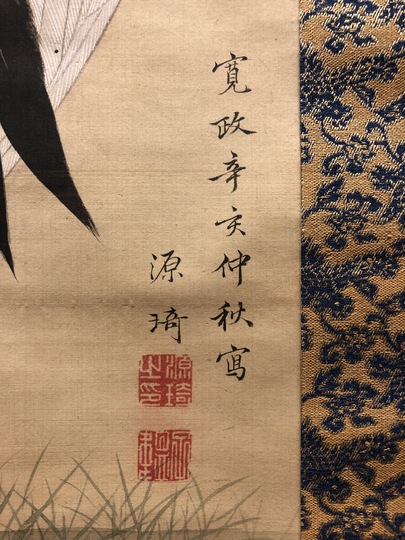 寛政辛亥仲秋寫
源琦
源琦之印